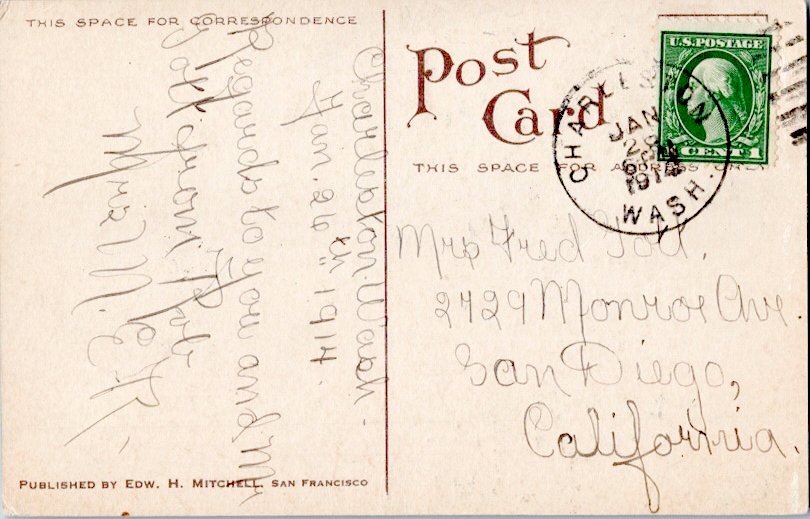 THIS SPACE FOR CORRESPONDENCE
Charleston. Wash.
Jan. 26th 1914.
Regards to you and Mr
Toll from Rob
Mrs M. E. K
PUBLISHED BY EDW. H. MITCHELL. SAN FRANCISCO
Post
Card
THIS SPACE FOR ADDRESS ONLY
U.S. POSTAGE
1 CENT 1
CHARLESTON
JAN
28
1914
WASH.
Mrs Fred Toll,
2729 Monroe Ave.
San Diego,
California.